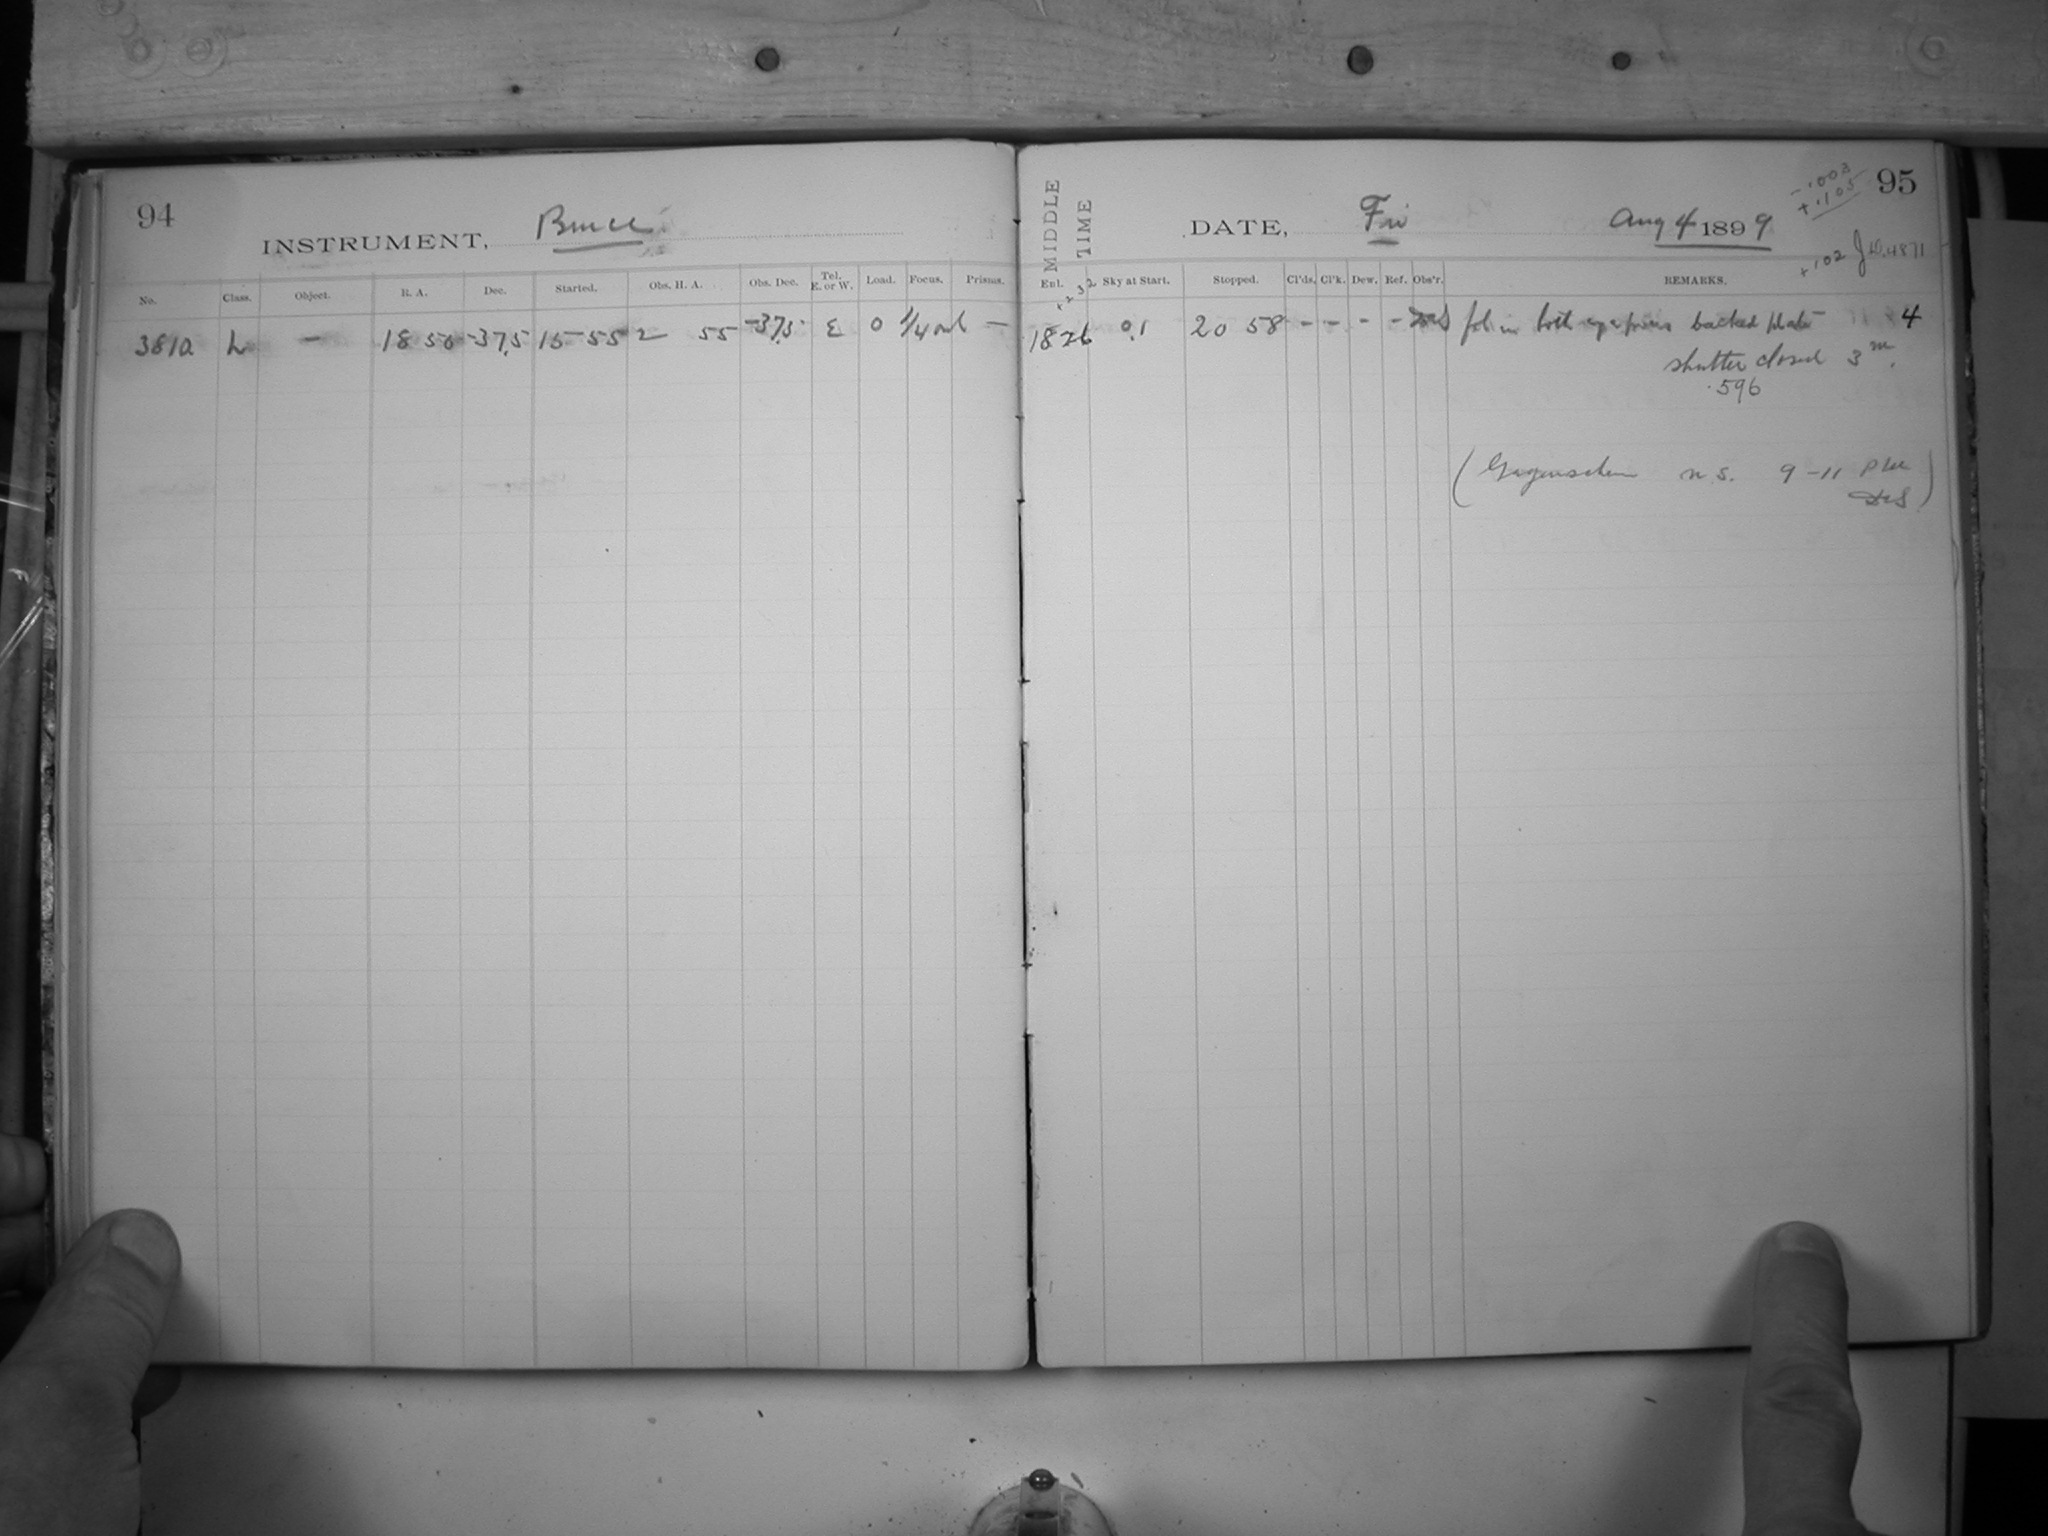 94
INSTRUMENT, Bruce
No. Class. Object. R. A. Dec. Started. Obs. H. A. Obs. Dec. Tel. E. or W. Load. Focus. Prisms.
3810 L — 18 50 -37.5 15 55 2 55 -37.5 E 0 1/4 —
95
-.003
+.105
+.102 J.D. 4871
MIDDLE TIME
DATE, Fri Aug 4 1899
Ent. Sky at Start. Stopped. Cl'ds. Cl'k. Dew. Ref. Obs'r. REMARKS.
1826 0.1 20 58 - - - - fol in both eyepieces backed plate 4
shutter closed 3m.
.596
(Gegenschein n.s. 9-11 P.M.
DeS)